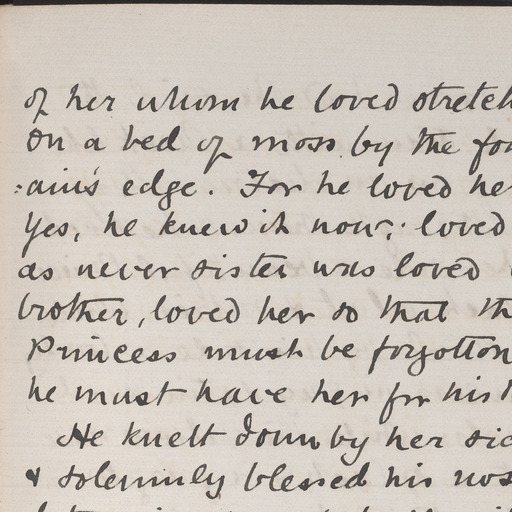 of her whom he loved stretch
on a bed of moss by the fou
:ain's edge. For he loved her
Yes, he knew it now; loved
as never sister was loved
brother, loved her so that th
Princess must be forgotton
he must have her for his
He knelt down by her sid
& solemnly blessed his